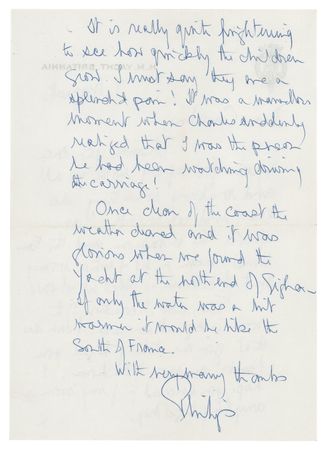 . It is really quite frightening
to see how quickly the children
H.M. YACHT BRITANNIA
grow. I must say they are a
splendid pair! It was a marvellous
moment when Charlie suddenly
realized that I was the person
he had been watching driving
the carriage!
Once clear of the coast the
weather cleared and it was
glorious when we found the
Yacht at the north end of
If only the water was a bit
warmer it would be like the
South of France.
With very many thanks
Philip